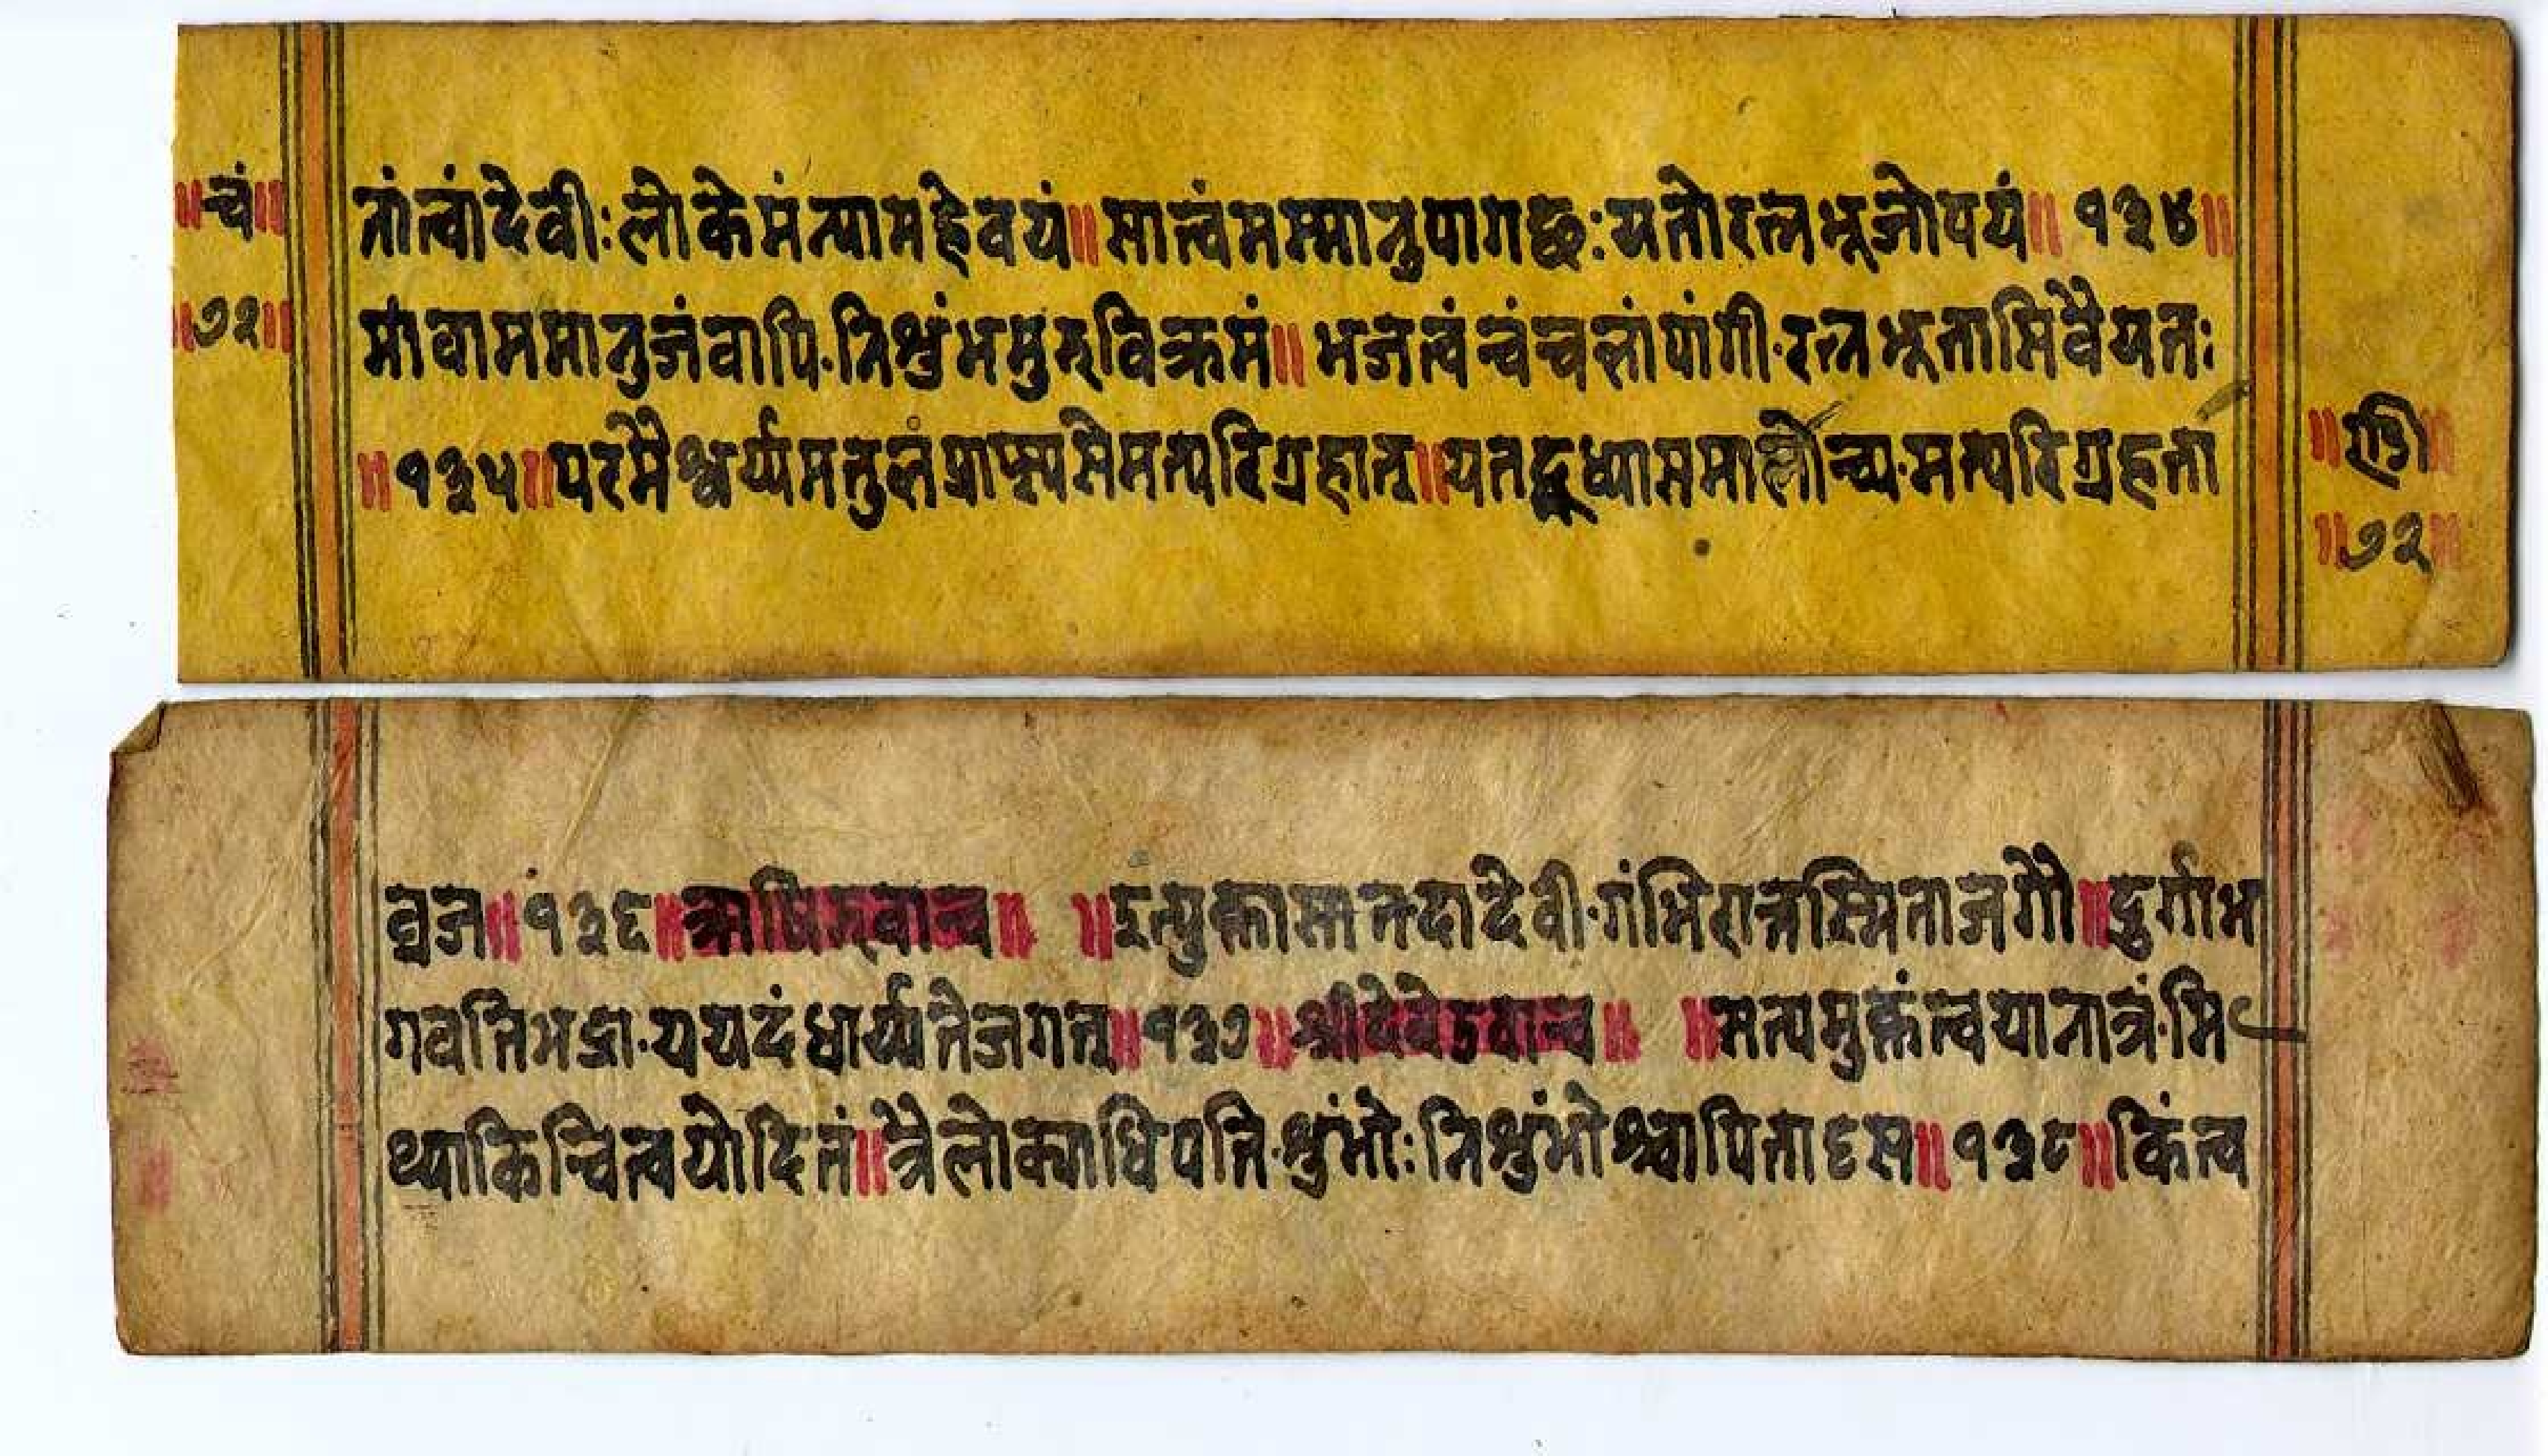 ॥चं॥
॥७२॥
नांत्वांदेवीःलोकेमंन्यामहेवयं॥सात्वंमस्मानुपागच्छःयतोरत्नभूजोपयं॥१३४॥
मांवाममानुजंवापि·निशुंभमुरुविक्रमं॥भजत्वंच्वंच्चलांपांगी·रत्नभूतासिवैयतः
॥१३५॥परमैश्वर्य्यमतुलंप्राप्स्यसेमत्परिग्रहात्॥यतद्बूध्यासमालोच्य·मत्परिग्रहता
॥७२॥
व्रज॥१३६॥ऋषिरुवाच॥ ॥इत्युक्तासातदादेवी·गंभिरान्तस्मिताजगौ॥दुर्गाभ
गवतिभद्रा·यययदंधार्य्यतेजगत्॥१३७॥श्रीदेवेउवाच॥ ॥सत्यमुक्तंत्वयानात्रं·मि
थ्याकिञ्चित्वयोदितं॥त्रैलोक्याधिपति·शुंभोःनिशुंभोश्चापितादृस॥१३८॥किंत्व